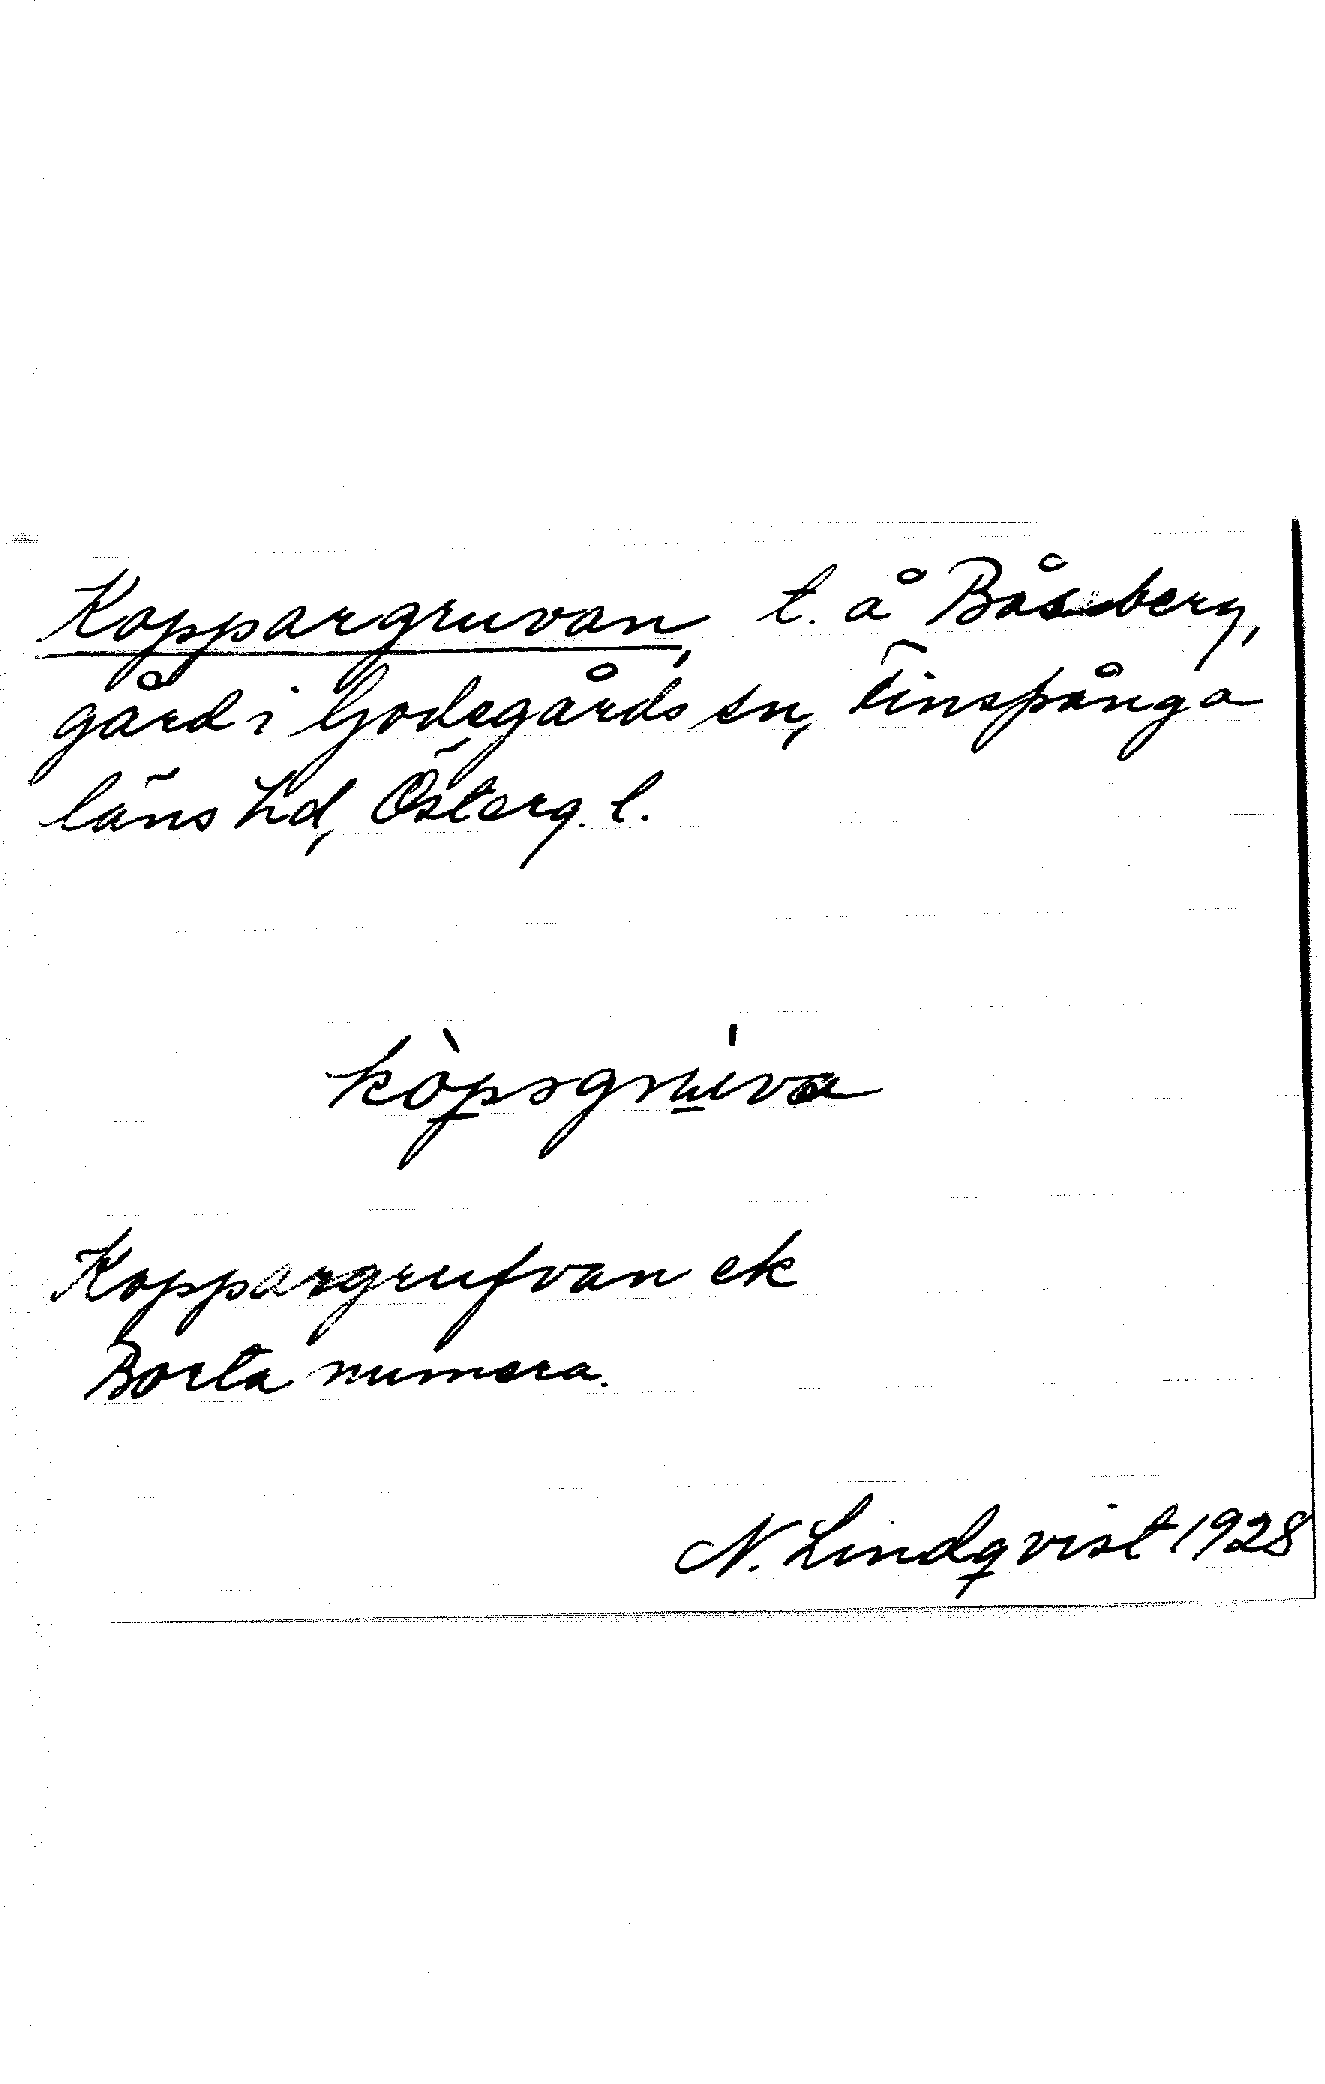 Koppargruvan, t. å Båsberg,
gård i Godegårds sn, Finspånga
läns hd, Österg. l.
kòpsgruva
Koppargrufvan ek
Borta numera.
N. Lindqvist 1928